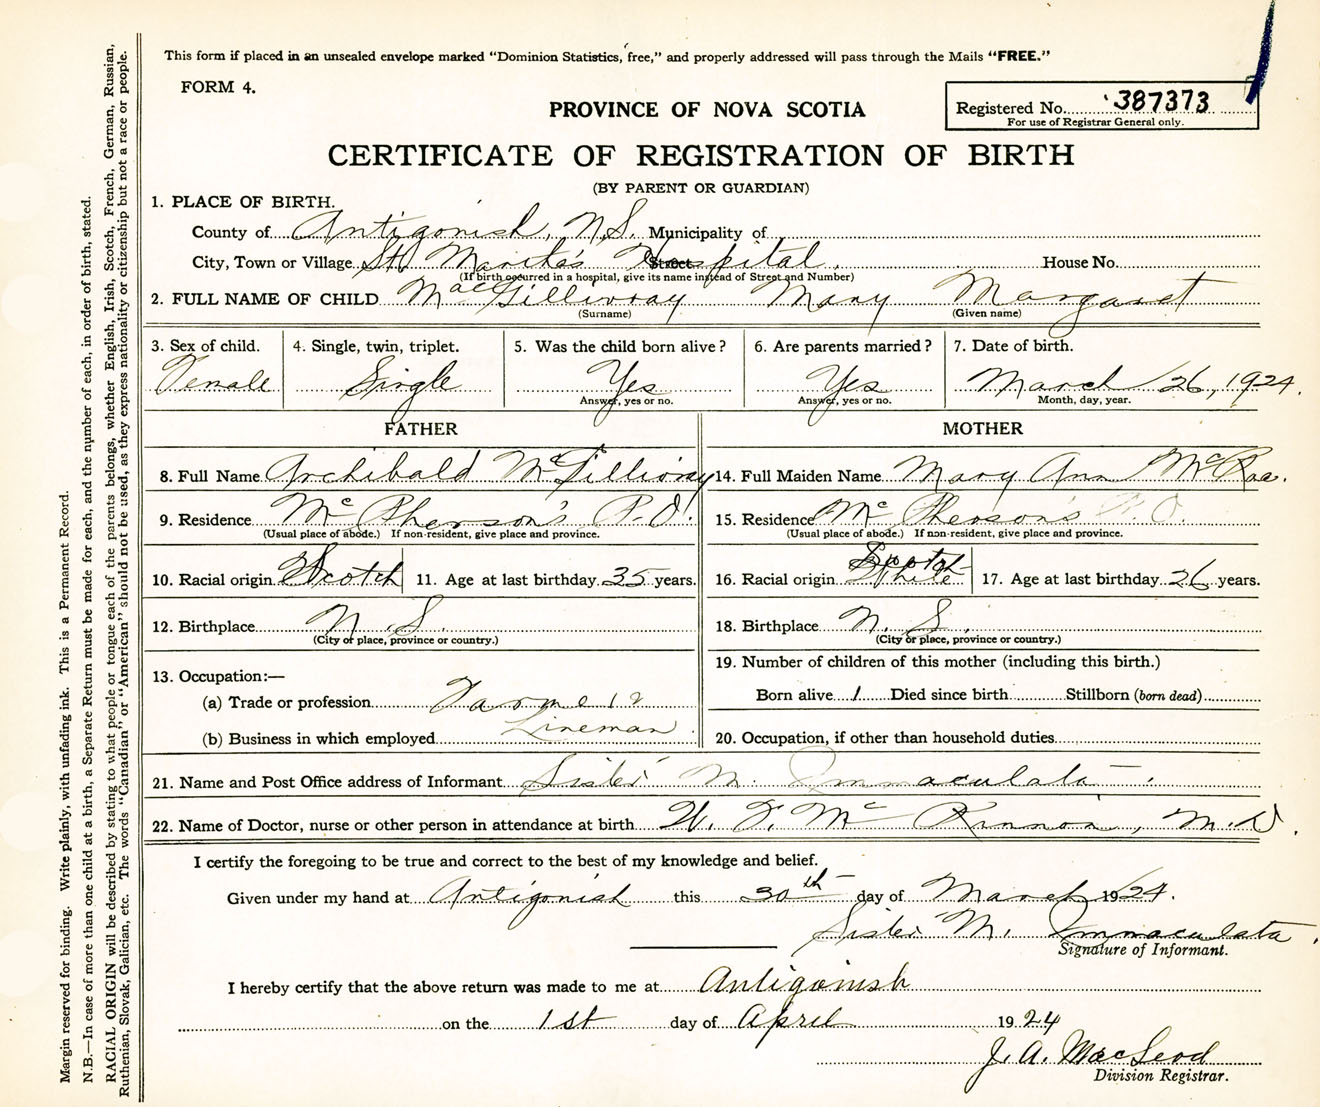 This form if placed in an unsealed envelope marked "Dominion Statistics, free," and properly addressed will pass through the Mails "FREE."
FORM 4.
PROVINCE OF NOVA SCOTIA
Registered No. 387373
For use of Registrar General only.
CERTIFICATE OF REGISTRATION OF BIRTH
(BY PARENT OR GUARDIAN)
1. PLACE OF BIRTH.
County of Antigonish, N.S. Municipality of
City, Town or Village St. Martha's Hospital Street House No.
(If birth occurred in a hospital, give its name instead of Street and Number)
2. FULL NAME OF CHILD MacGillivray Mary Margaret
(Surname) (Given name)
3. Sex of child. 4. Single, twin, triplet. 5. Was the child born alive? 6. Are parents married? 7. Date of birth.
Female Single Yes Yes March 26, 1924.
Answer, yes or no. Answer, yes or no. Month, day, year.
FATHER MOTHER
8. Full Name Archibald McGillivray 14. Full Maiden Name Mary Ann McRae.
9. Residence McPherson's P.O. 15. Residence McPherson's P.O.
(Usual place of abode.) If non-resident, give place and province. (Usual place of abode.) If non-resident, give place and province.
Scotch
10. Racial origin Scotch 11. Age at last birthday 35 years. 16. Racial origin White 17. Age at last birthday 26 years.
12. Birthplace N.S. 18. Birthplace N.S.
(City or place, province or country.) (City or place, province or country.)
13. Occupation:— 19. Number of children of this mother (including this birth.)
(a) Trade or profession Farmer Born alive 1 Died since birth Stillborn (born dead)
Lineman
(b) Business in which employed 20. Occupation, if other than household duties
21. Name and Post Office address of Informant Sister M. Immaculata
22. Name of Doctor, nurse or other person in attendance at birth W. F. McKinnon, M.D.
I certify the foregoing to be true and correct to the best of my knowledge and belief.
Given under my hand at Antigonish this 30th day of March 1924.
Sister M. Immaculata.
Signature of Informant.
I hereby certify that the above return was made to me at Antigonish
on the 1st day of April 1924
J. A. MacLeod
Division Registrar.
Margin reserved for binding. Write plainly, with unfading ink. This is a Permanent Record.
N.B.—In case of more than one child at a birth, a Separate Return must be made for each, and the number of each, in order of birth, stated.
RACIAL ORIGIN will be described by stating to what people or tongue each of the parents belongs, whether English, Irish, Scotch, French, German, Russian,
Ruthenian, Slovak, Galician, etc. The words "Canadian" or "American" should not be used, as they express nationality or citizenship but not a race or people.